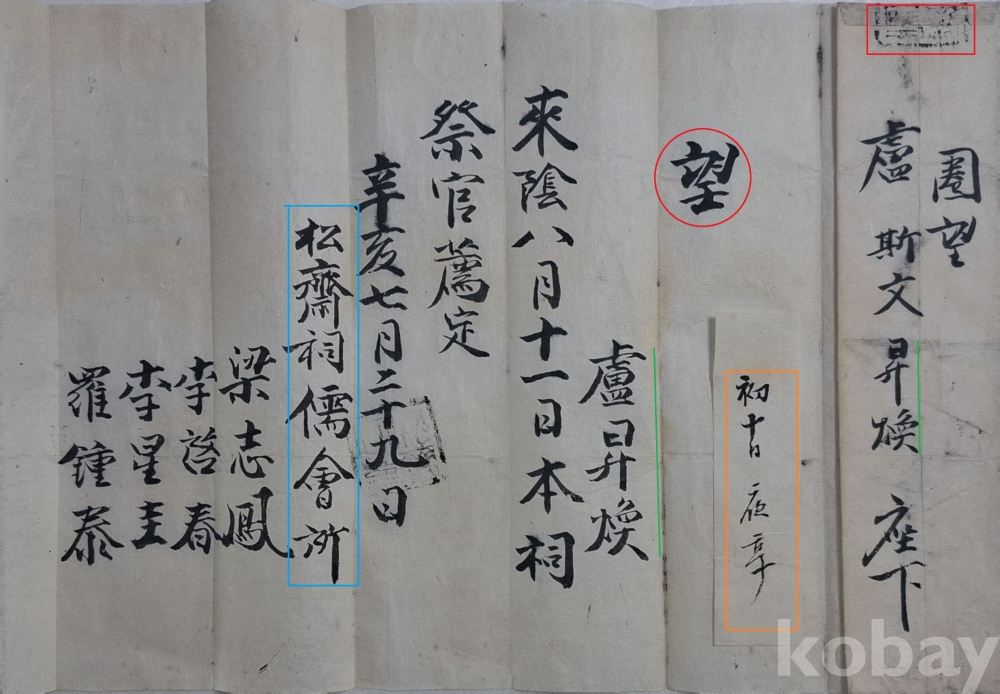 圈望
盧 斯文 昇煥 座下
初十日 夜享
望
盧昇煥
來陰八月十一日本祠
祭官薦定
辛亥七月二十九日
松齋祠儒會所
梁志鳳
李啓春
李星圭
羅鍾泰
kobay